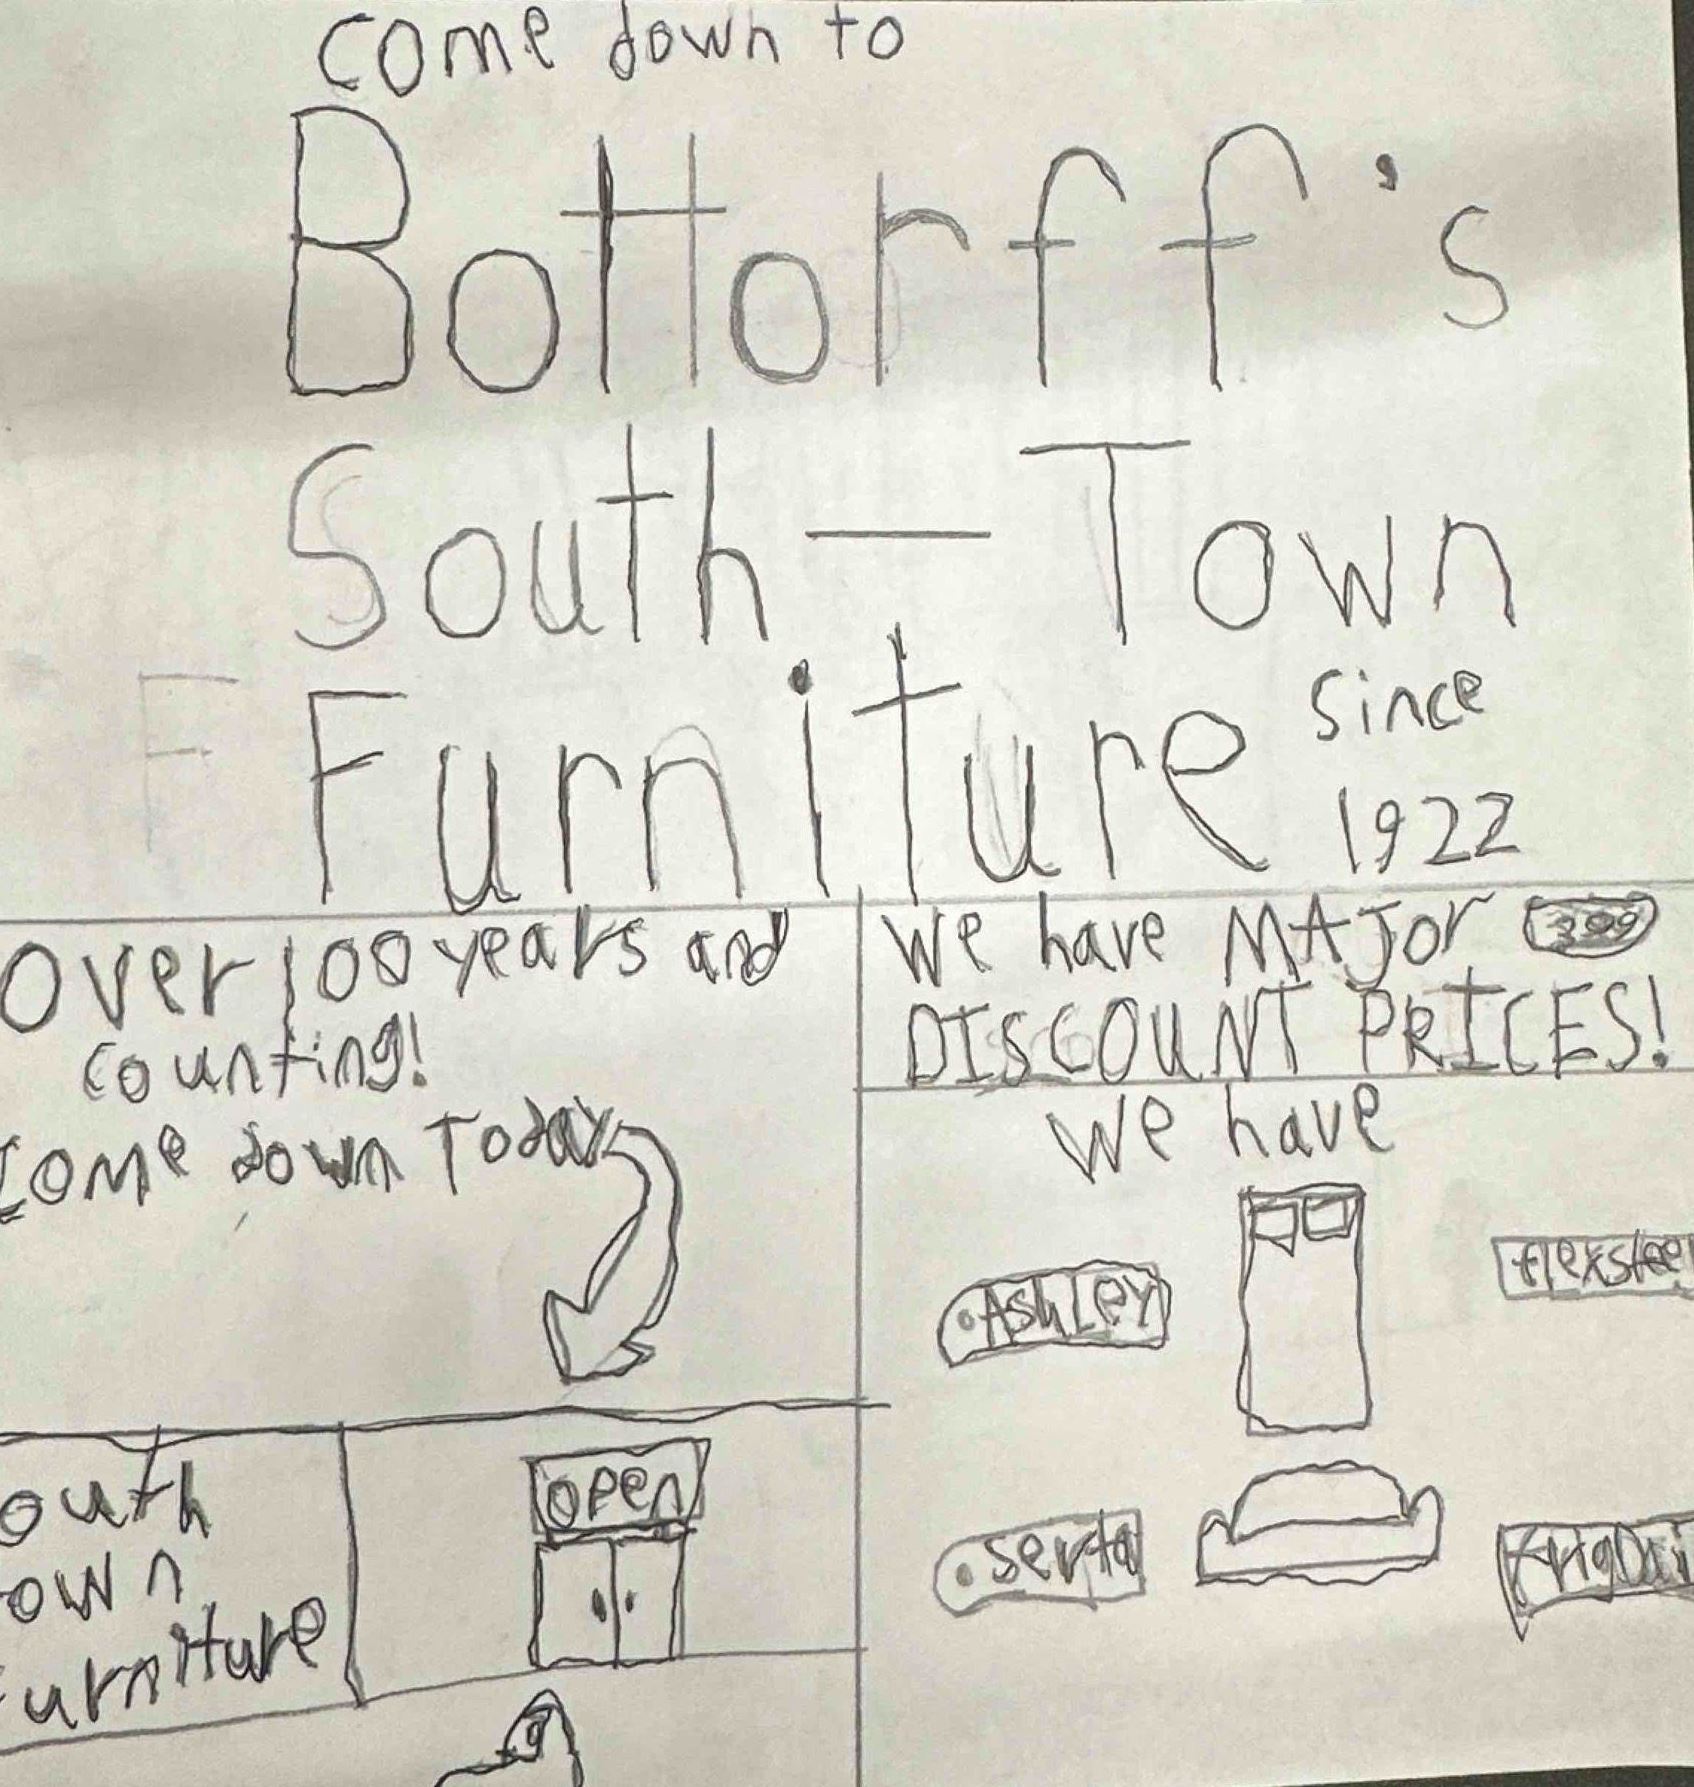 come down to
Bottorff's
South-Town
Furniture since
1922
Over 100 years and
counting!
come down Today
We have MAJor
DISCOUNT PRICES!
We have
Ashley
flexstee
serta
frigDai
open
outh
own
urniture